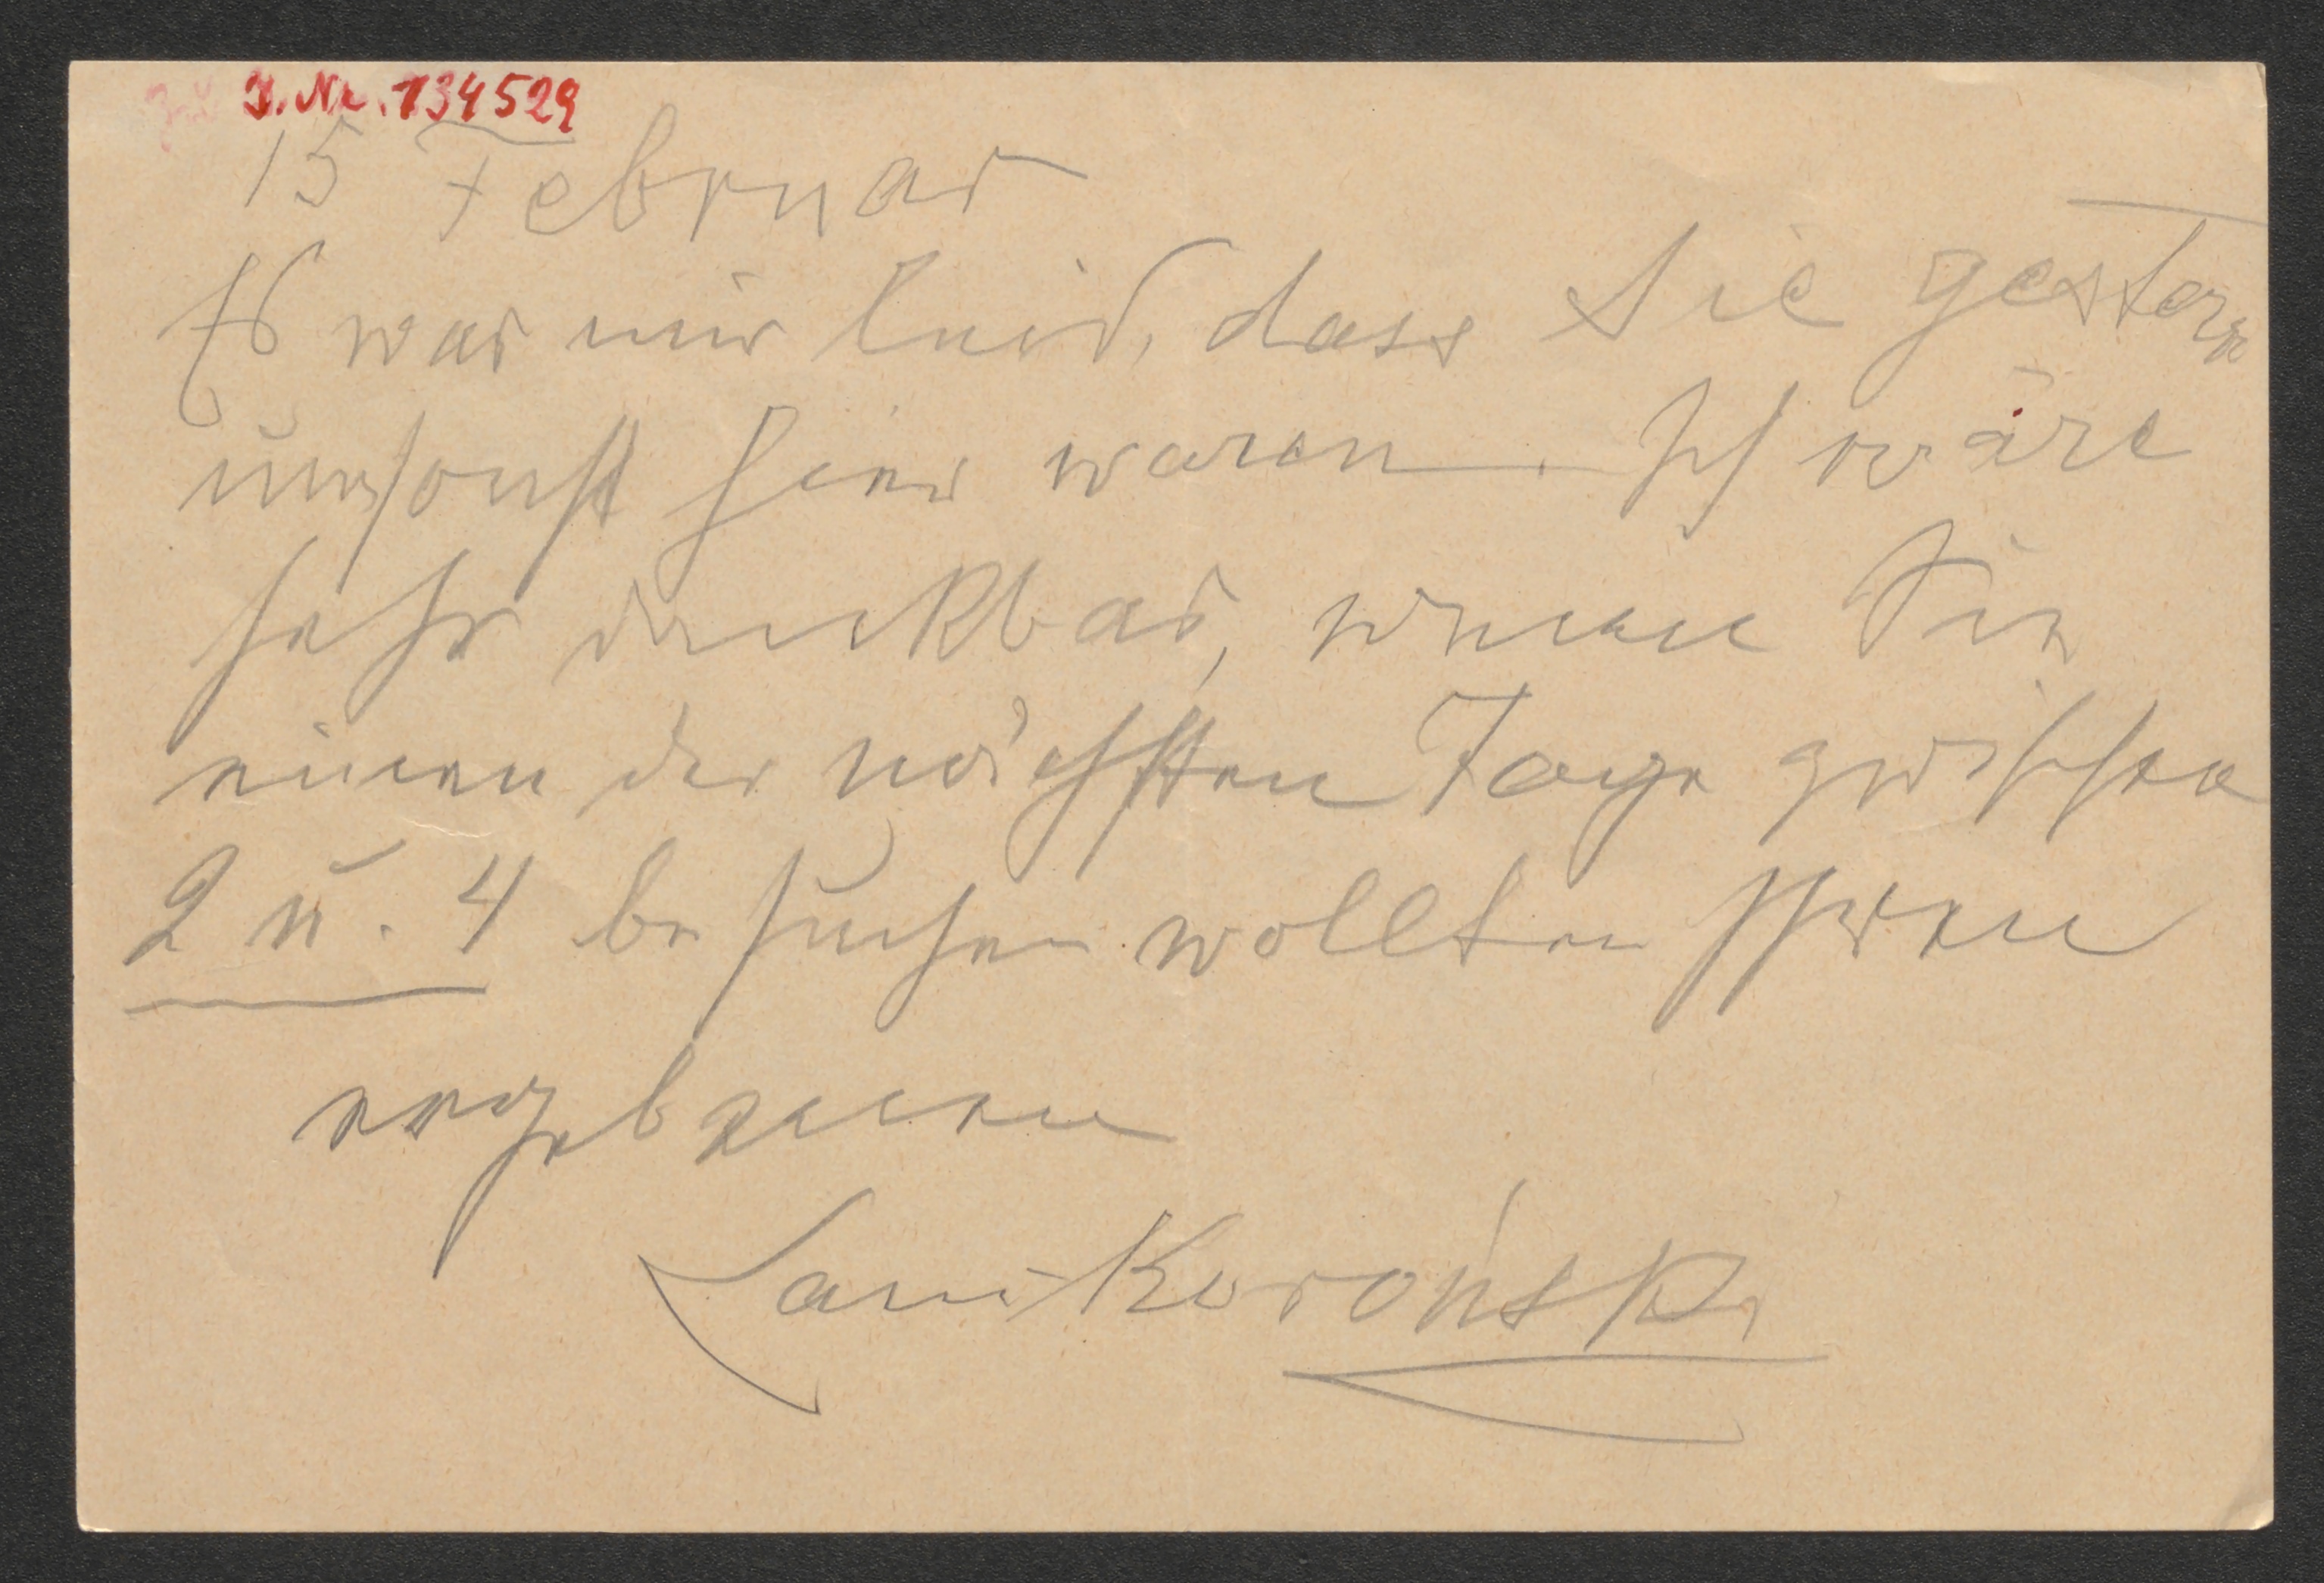 I. Nr. 134529
15 Februar
Es war mir leid, dass Sie gestern
umsonst hier waren. Ich wäre
sehr dankbar, wenn Sie
einen der nächsten Tage zwischen
2 u. 4 besuchen wollten Ihren
ergebenen
Lanckoroński